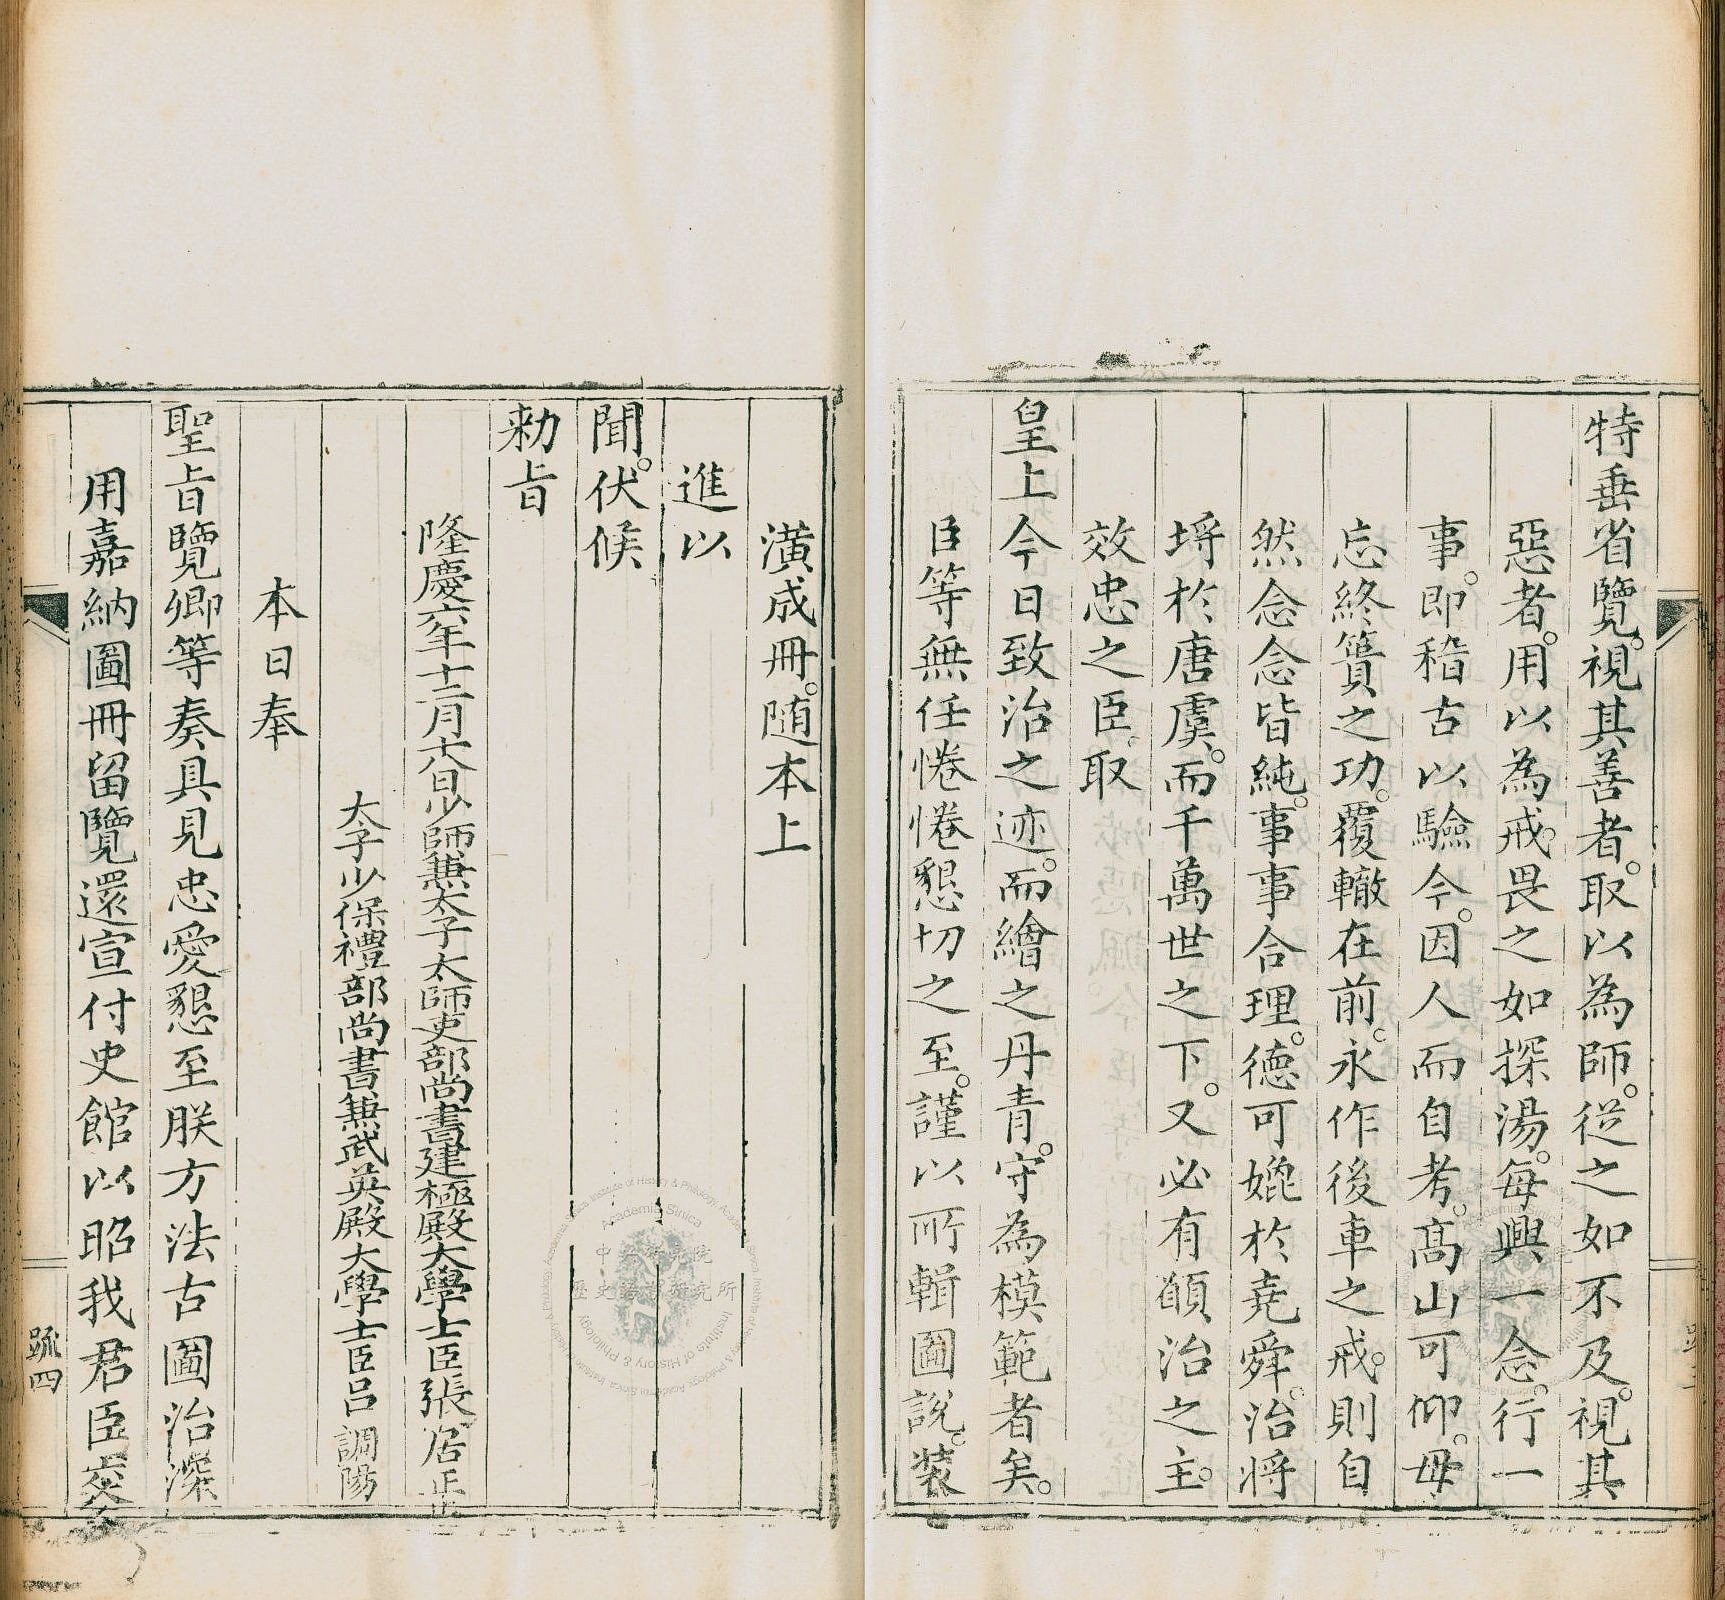 特垂省覽。視其善者。取以為師。從之如不及。視其
惡者。用以為戒。畏之如探湯。每興一念。行一
事。即稽古以驗今。因人而自考。高山可仰。毋
忘終簣之功。覆轍在前。永作後車之戒。則自
然念念皆純。事事合理。德可媲於堯舜。治將
埒於唐虞。而千萬世之下。又必有願治之主。
效忠之臣。取
皇上今日致治之迹。而繪之丹青。守為模範者矣。
臣等無任惓惓懇切之至。謹以所輯圖說。裝
潢成冊。随本上
進以
聞。伏候
勑旨
隆慶六年十二月十八日少師兼太子太師吏部尚書建極殿大學士臣張居正
太子少保禮部尚書兼武英殿大學士臣呂調陽
本日奉
聖旨覽卿等奏具見忠愛懇至朕方法古圖治深
用嘉納圖冊留覽還宣付史館以昭我君臣交
疏四
中央研究院
歷史語言研究所
Academia Sinica
Institute of History & Philology